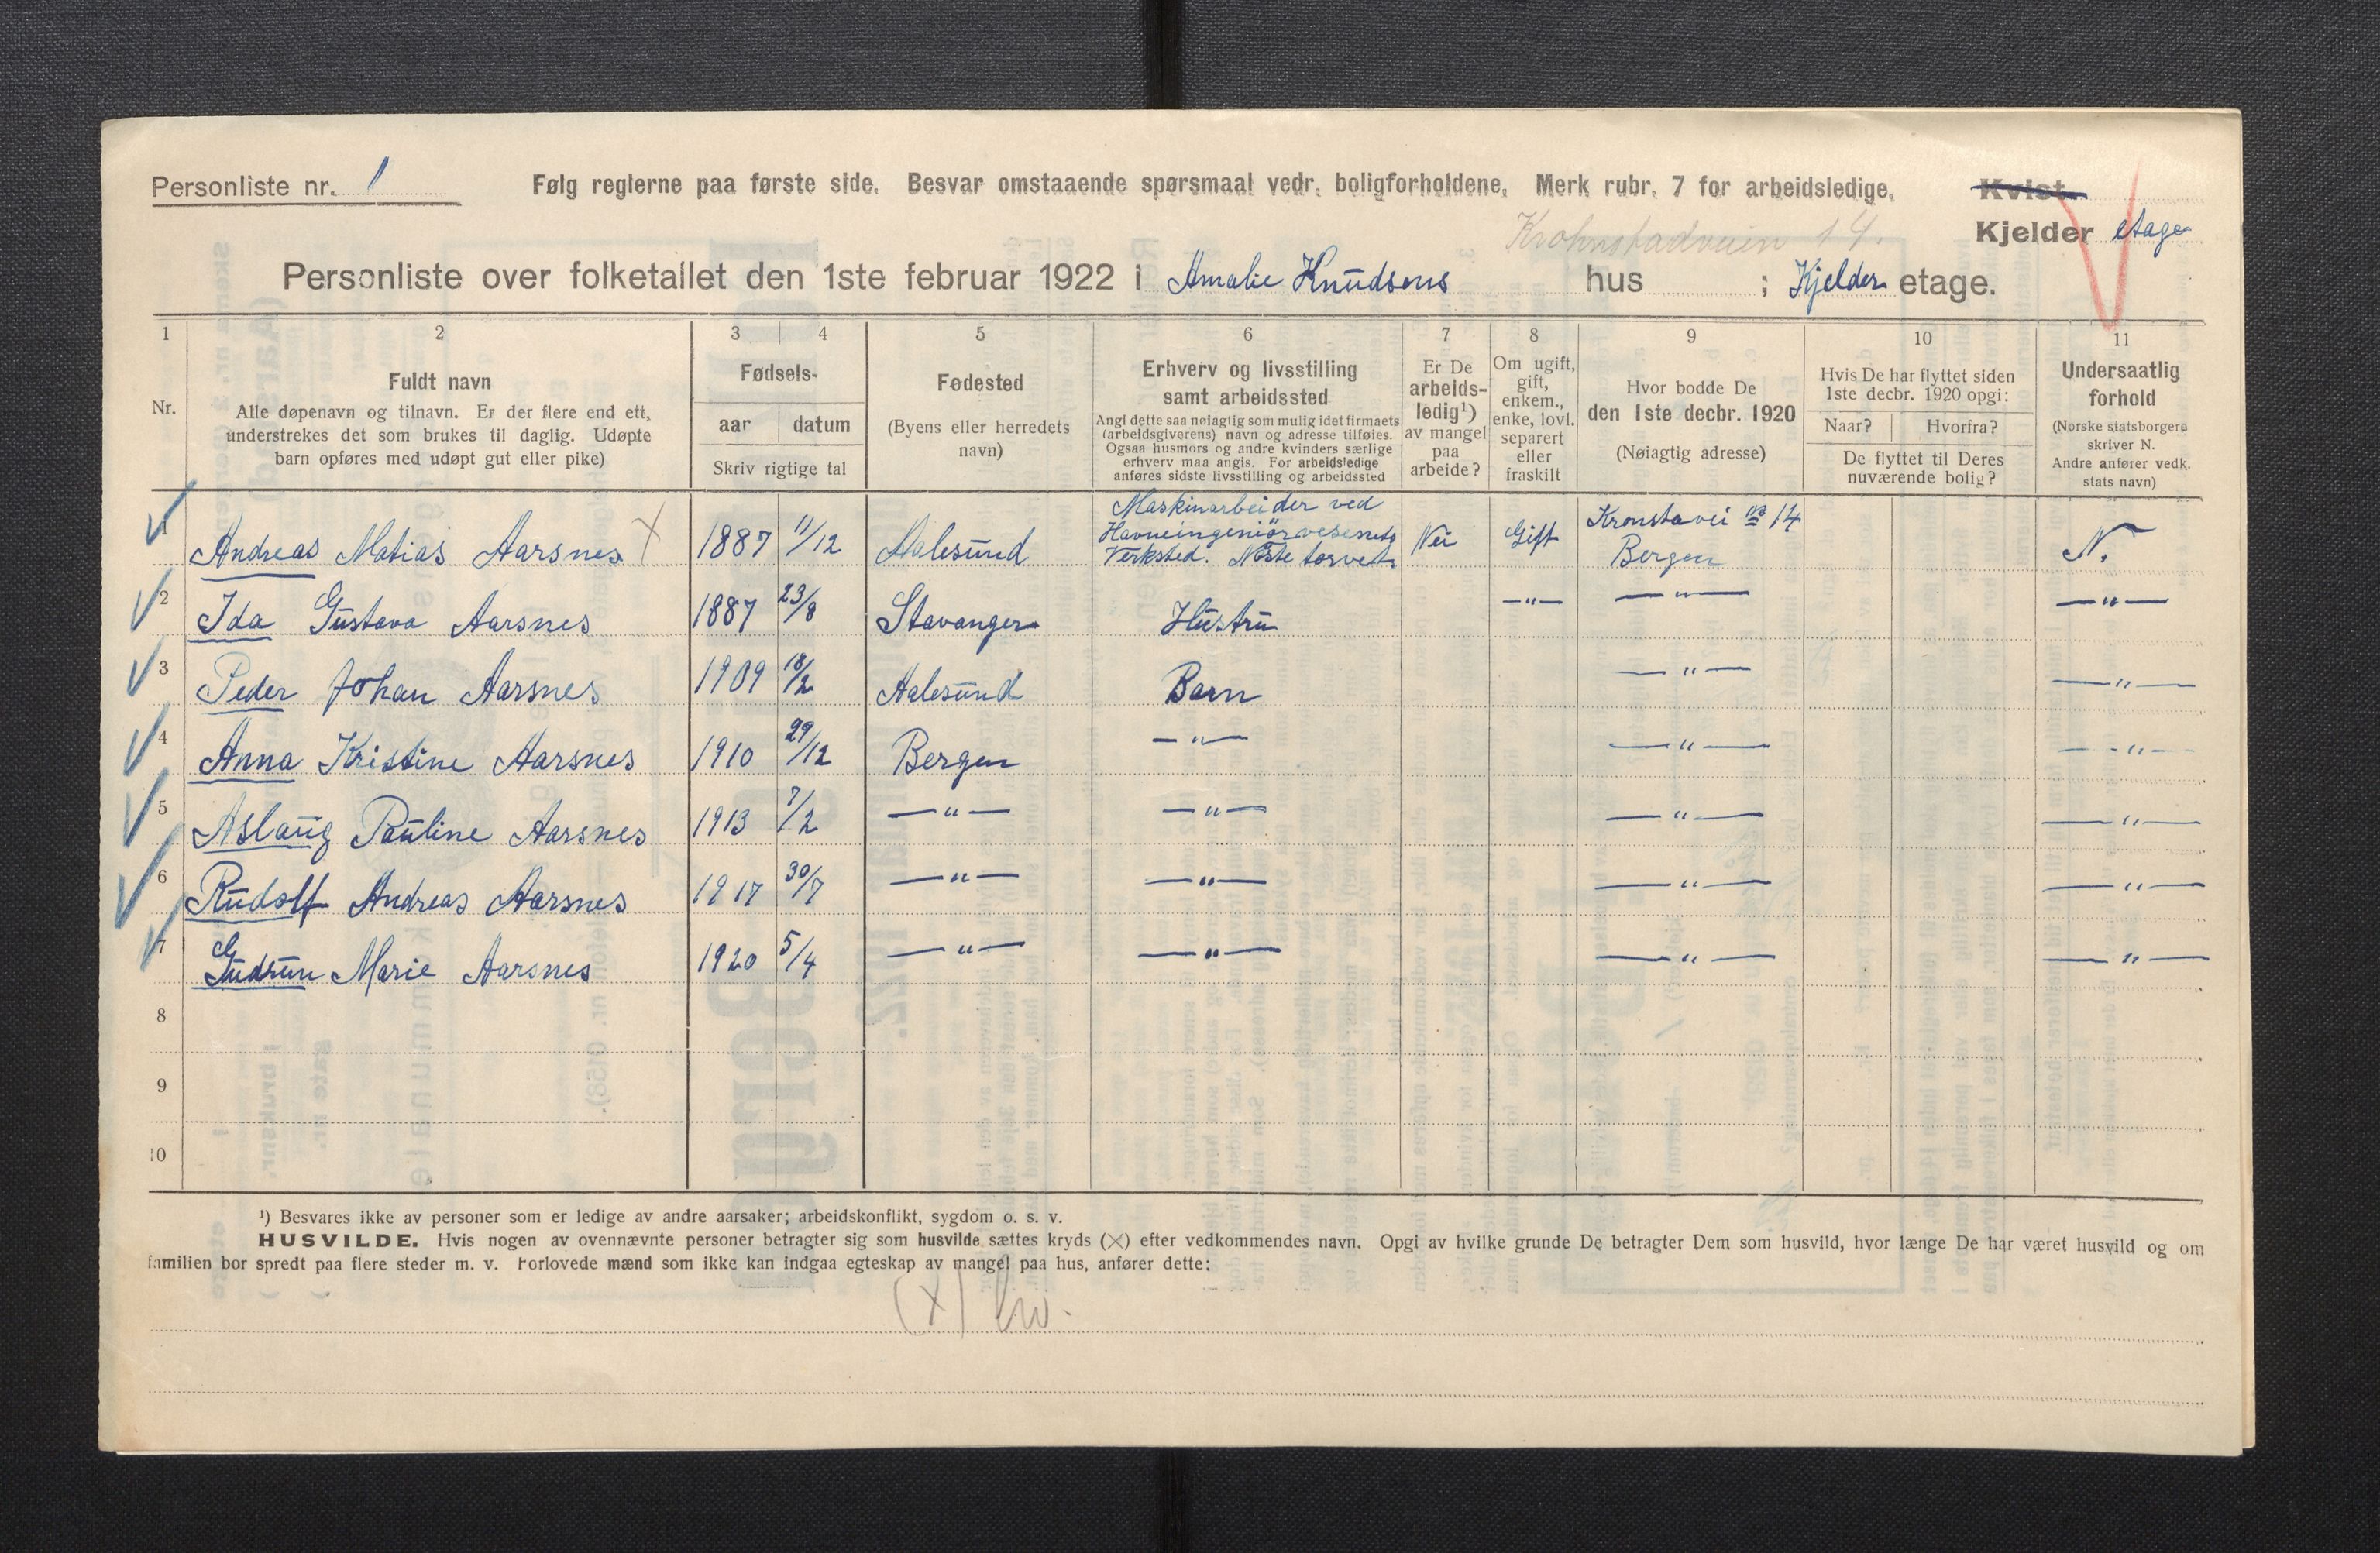 Personliste nr. 1
Følg reglerne paa første side. Besvar omstaaende spørsmaal vedr. boligforholdene. Merk rubr. 7 for arbeidsledige.
Kvist
Kjelder etage
Krohnstadveien 14.
Personliste over folketallet den 1ste februar 1922 i Amalie Knudsens hus ; Kjelder etage.
1 2 3 4 5 6 7 8 9 10 11
Nr.
Fuldt navn
Alle døpenavn og tilnavn. Er der flere end ett,
understrekes det som brukes til daglig. Udøpte
barn opføres med udøpt gut eller pike)
Fødsels-
aar datum
Skriv rigtige tal
Fødested
(Byens eller herredets
navn)
Erhverv og livsstilling
samt arbeidssted
Angi dette saa nøiagtig som mulig idet firmaets
(arbeidsgiverens) navn og adresse tilføies.
Ogsaa husmors og andre kvinders særlige
erhverv maa angis. For arbeidsledige
anføres sidste livsstilling og arbeidssted
Er De
arbeids-
ledig¹)
av mangel
paa
arbeide?
Om ugift,
gift,
enkem.,
enke, lovl.
separert
eller
fraskilt
Hvor bodde De
den 1ste decbr. 1920
(Nøiagtig adresse)
Hvis De har flyttet siden
1ste decbr. 1920 opgi:
Naar? Hvorfra?
De flyttet til Deres
nuværende bolig?
Undersaatlig
forhold
(Norske statsborgere
skriver N.
Andre anfører vedk.
stats navn)
1 Andreas Matias Aarsnes X 1887 11/12 Aalesund Maskinarbeider ved Havneingeniørvesenets Verksted. Nöste torvet. Nei Gift Kronstavei № 14 Bergen N.
2 Ida Gustava Aarsnes 1887 23/8 Stavanger Hustru —"— —"— —"—
3 Peder Johan Aarsnes 1909 18/2 Aalesund Barn —"— —"—
4 Anna Kristine Aarsnes 1910 29/12 Bergen —"— —"— —"—
5 Aslaug Pauline Aarsnes 1913 7/2 —"— —"— —"— —"—
6 Rudolf Andreas Aarsnes 1917 30/7 —"— —"— —"— —"—
7 Gudrun Marie Aarsnes 1920 5/4 —"— —"— —"— —"—
8
9
10
¹) Besvares ikke av personer som er ledige av andre aarsaker; arbeidskonflikt, sygdom o. s. v.
HUSVILDE. Hvis nogen av ovennævnte personer betragter sig som husvilde sættes kryds (X) efter vedkommendes navn. Opgi av hvilke grunde De betragter Dem som husvild, hvor længe De har været husvild og om
familien bor spredt paa flere steder m. v. Forlovede mænd som ikke kan indgaa egteskap av mangel paa hus, anfører dette:
(X)